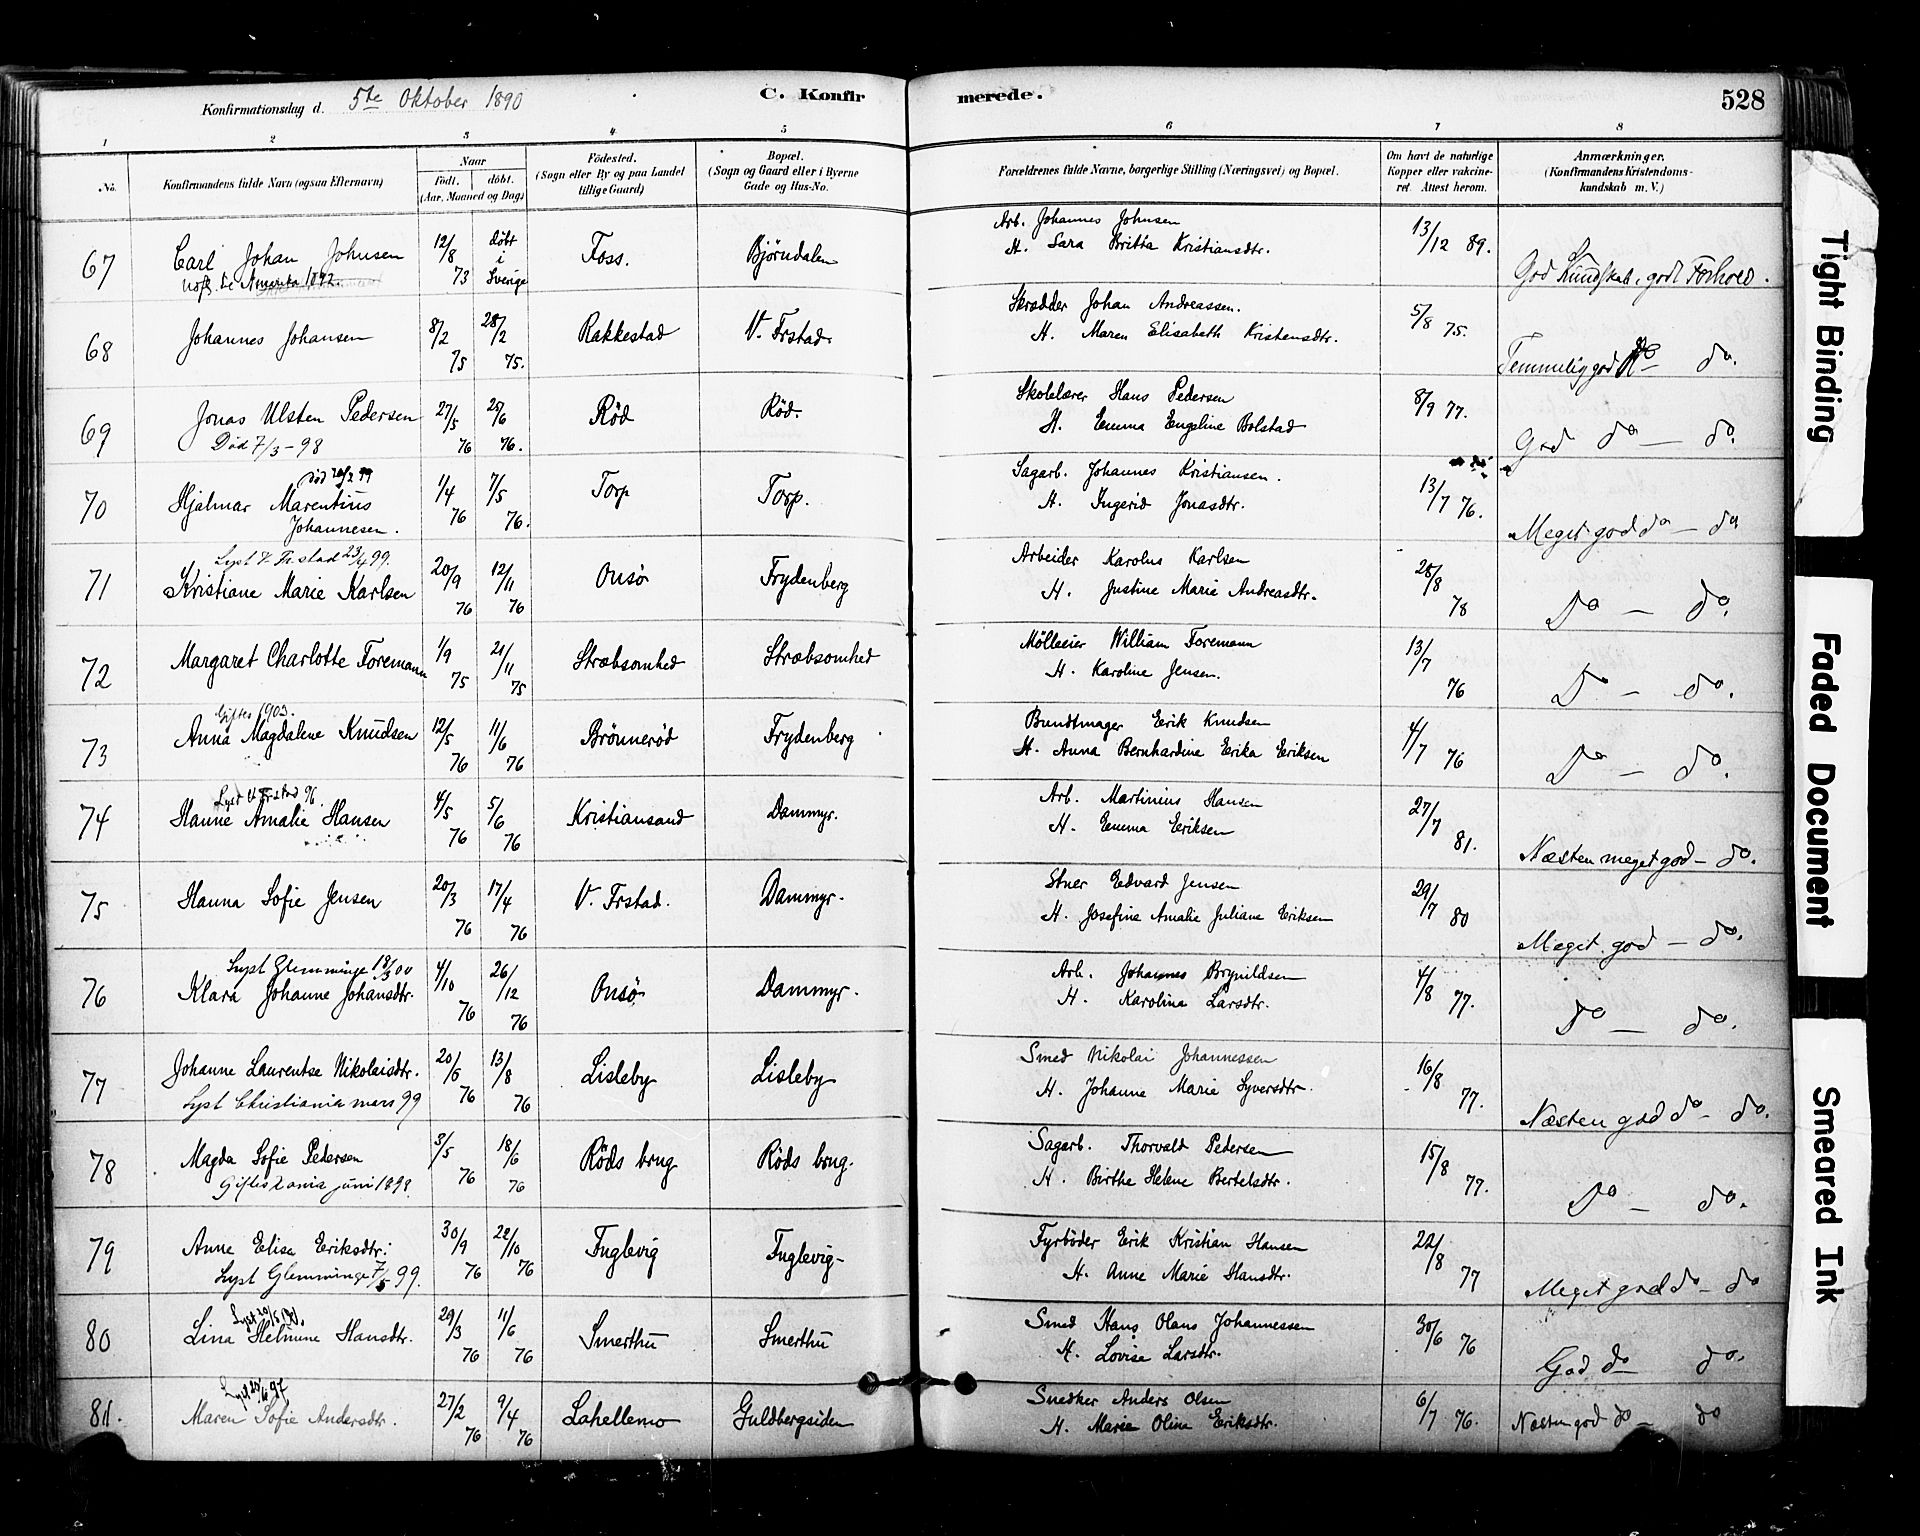 Konfirmationsdag d. 5te Oktober 1890
C. Konfirmerede.
528
1 2 3 4 5 6 7 8
No.
Konfirmandens fulde Navn (ogsaa Efternavn)
Naar
Født. døbt.
(Aar, Maaned og Dag)
Fødested.
(Sogn eller By og paa Landet
tillige Gaard)
Bopæl.
(Sogn og Gaard eller i Byerne
Gade og Hus-No.
Forældrenes fulde Navne, borgerlige Stilling (Næringsvei) og Bopæl.
Om havt de naturlige
Kopper eller vakcine-
ret. Attest herom.
Anmærkninger.
(Konfirmandens Kristendoms-
kundskab m. V.)
67 Carl Johan Johnsen 12/8 73 døbt i Sverige Foss. Bjørndalen Arb. Johannes Johnsen 13/12 89. God Kundskab, godt Forhold.
Amerika 1892. H. Sara Britta Kristiansdtr.
68 Johannes Johansen 8/2 75 28/2 75. Rakkestad V. Frstad. Skrædder Johan Andreassen. 5/8 75. Temmelig god do — do.
H. Maren Elisabeth Kristensdtr.
69 Jonas Ulsten Pedersen 27/5 76 25/6 76. Rød Rød. Skolelærer Hans Pedersen 8/9 77. God do — do.
Død 7/3-98 H. Emma Engeline Bolstad
død 20/2 99
70 Hjalmar Marentius 1/4 76 7/5 76. Torp Torp. Sagarb. Johannes Kristiansen. 13/7 76. Meget god do — do
Johannesen. H. Ingerid Jonasdtr.
Lyst V. Frstad 23/4 99.
71 Kristiane Marie Karlsen 20/9 76 12/11 76 Onsø Frydenberg Arbeider Karolus Karlsen 28/8 78 Do — do.
H. Justine Marie Andreasdtr.
72 Margaret Charlotte Foremann 1/9 75 21/11 75 Stræbsomhed Stræbsomhed Mølleeier William Foremann 13/7 76 Do — do.
H. Karoline Jensen.
Giftes 1903.
73 Anna Magdalene Knudsen 12/5 76 11/6 76 Brønnerød Frydenberg Bundtmager Eerik Knudsen 4/7 76 Do — do.
H. Anna Bernhardine Erika Eriksen
Lyst V Frstad 96.
74 Hanne Amalie Hansen 4/5 76 5/6 76 Kristiansand Dammyr. Arb. Martinius Hansen 27/7 81. Næsten meget god — do.
H. Emma Eriksen
75 Hanna Sofie Jensen 20/3 76 17/4 76 V. Frstad. Dammyr. Stuer Edvard Jensen 29/7 80 Meget god — do.
H. Josefine Amalie Juliane Eriksen
Lyst Glemminge 18/3 00
76 Klara Johanne Johansdtr. 4/10 76 26/12 76 Onsø Dammyr. Arb. Johannes Brynildsen 4/8 77. Do — do.
H. Karolina Larsdtr.
77 Johanne Laurentse Nikolaisdtr. 20/6 76 13/8 76 Lisleby Lisleby Smed Nikolai Johannessen 16/8 77. Næsten god do — do.
Lyst Christiania mars 99 H. Johanne Marie Syversdtr.
78 Magda Sofie Pedersen 3/5 76 18/6 76 Røds brug Røds brug. Sagarb. Thorvald Pedersen 15/8 77. Do — do.
Giftes Xania juni 1898 H. Birthe Helene Bertelsdtr.
79 Anne Elise Eriksdtr. 30/9 76 22/10 76 Fuglevig Fuglevig Fyrbøder Erik Kristian Hansen 22/8 77 Meget god do — do
Lyst Glemminge 7/5 99. H. Anne Marie Hansdtr.
80 Lina Helmine Hansdtr. 29/3 76 11/6 76 Smerthu Smerthu Smed Hans Olaus Johannessen 30/6 76 God do — do.
H. Lovise Larsdtr.
81. Maren Sofie Andersdtr. 27/2 76 9/4 76 Lahellemo Guldbergsiden Snedker Anders Olsen 6/7 76. Næsten god do — do
H. Marie Oline Eriksdtr.
Tight Binding
Faded Document
Smeared Ink